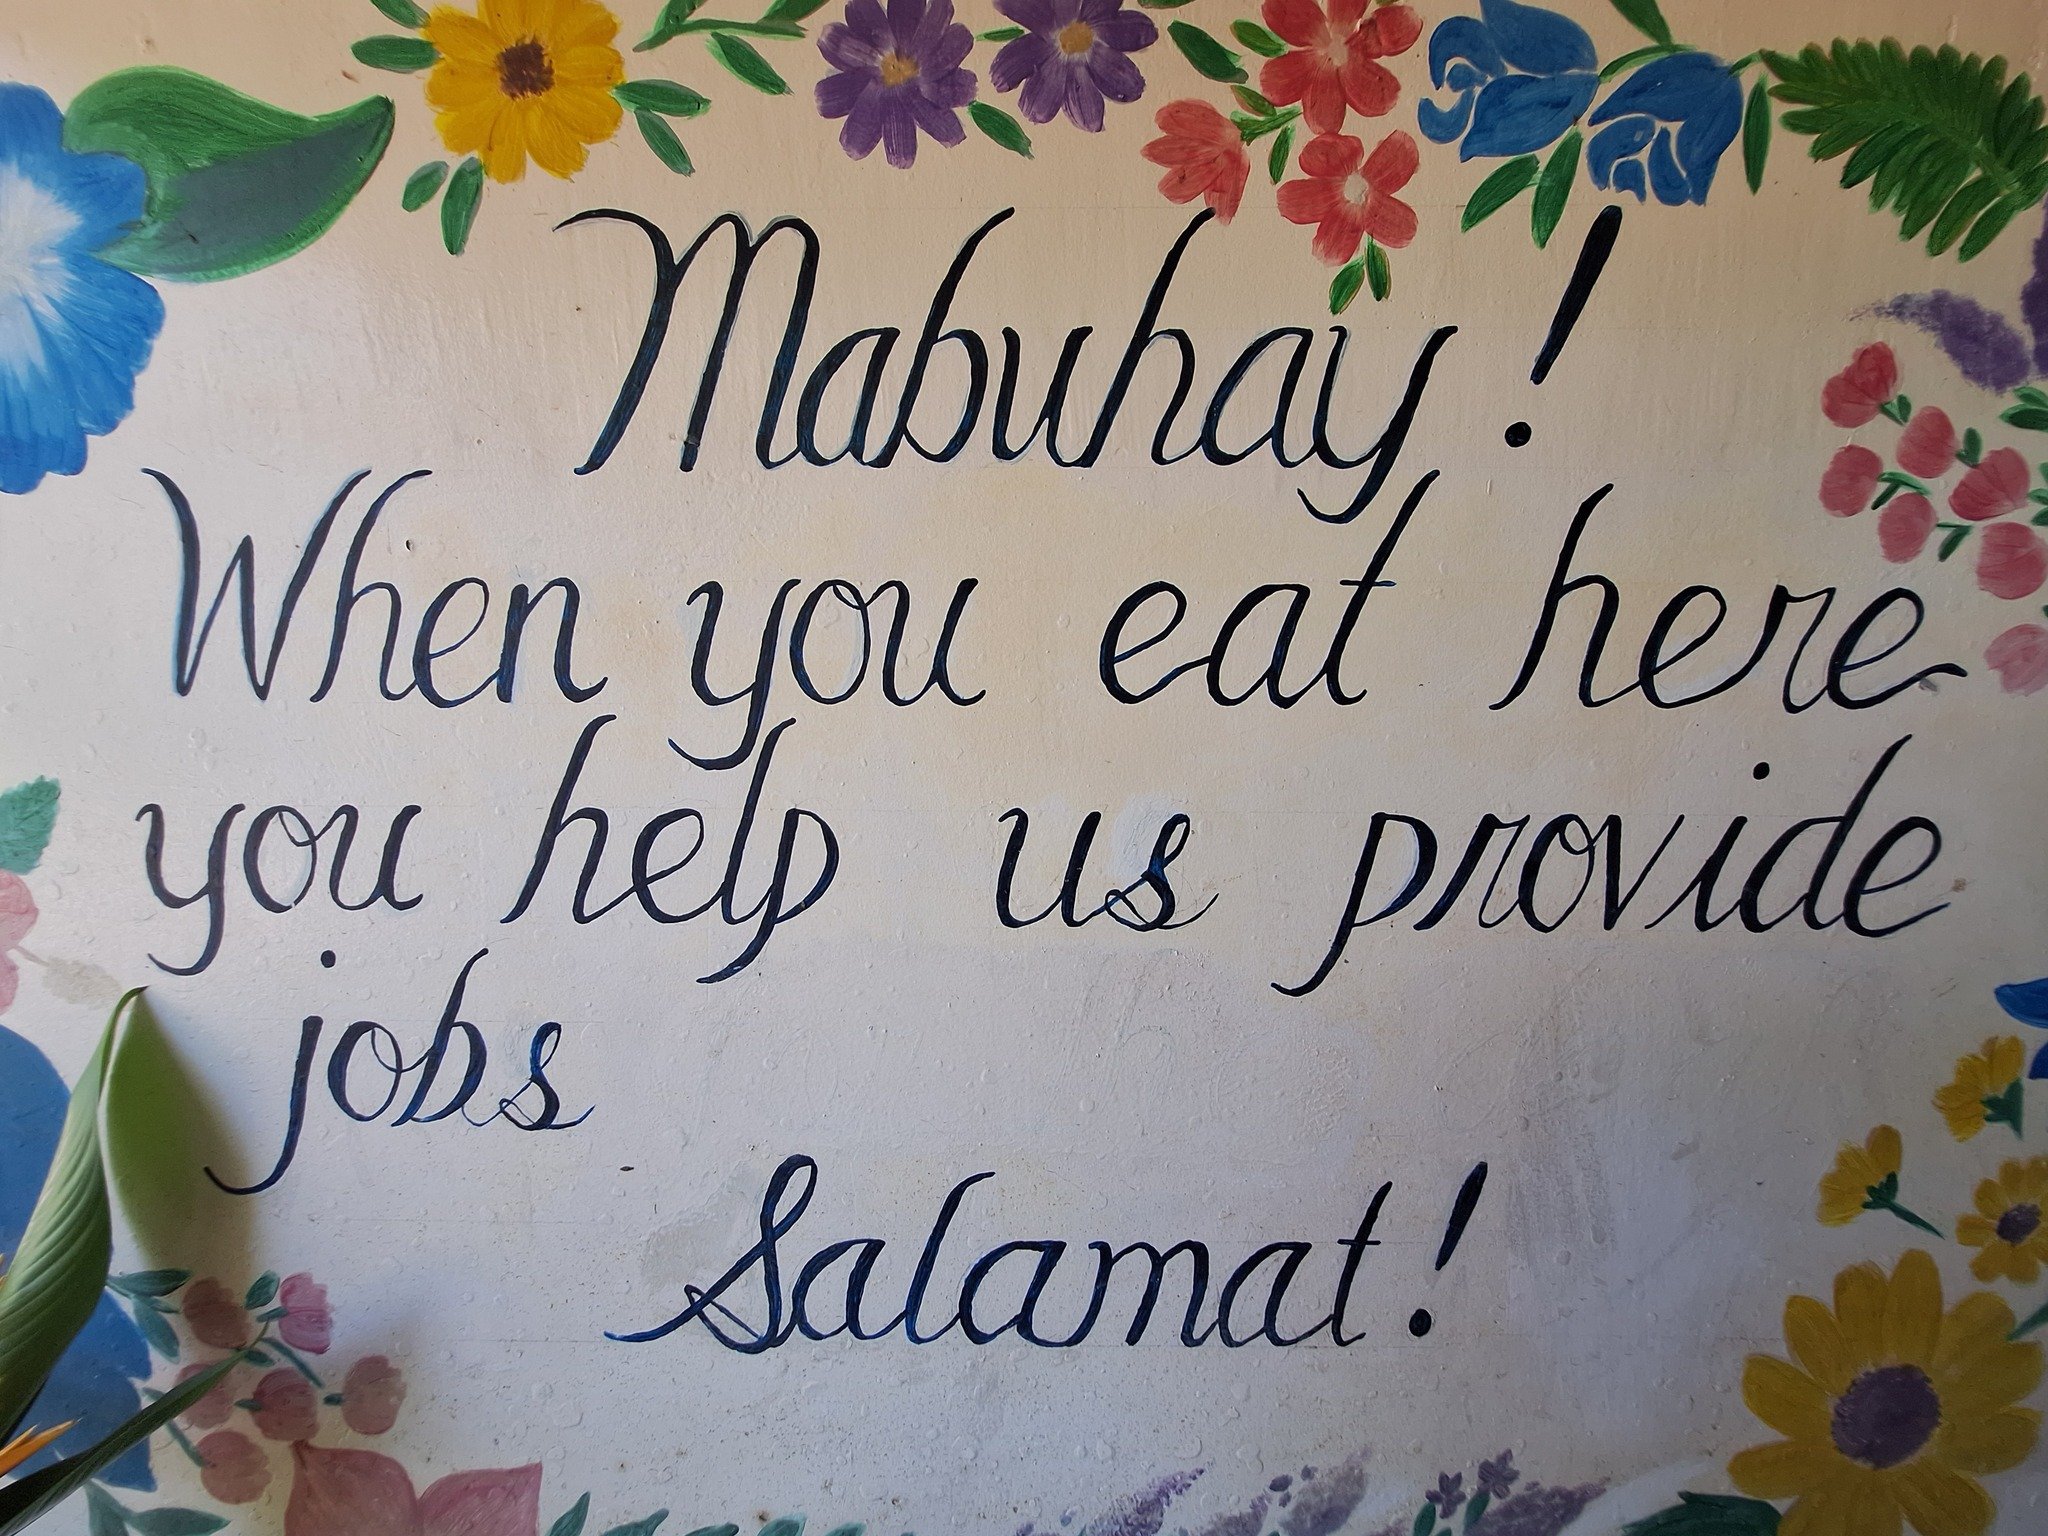 Mabuhay!
When you eat here
you help us provide
jobs
Salamat!